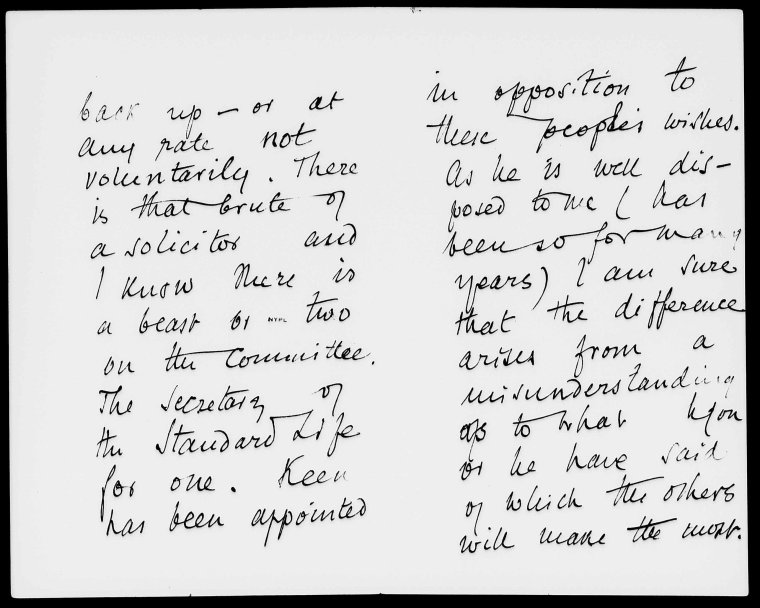 back up – or at
any rate not
voluntarily. There
is that brute of
a solicitor and
I know there is
a beast or two
on the Committee.
The Secretary of
the Standard Life
for one. Keen
has been appointed
in opposition to
these people's wishes.
As he is well dis-
posed to me (has
been so for many
years) I am sure
that the difference
arises from a
misunderstanding
as to what you
or he have said
of which the others
will make the most.